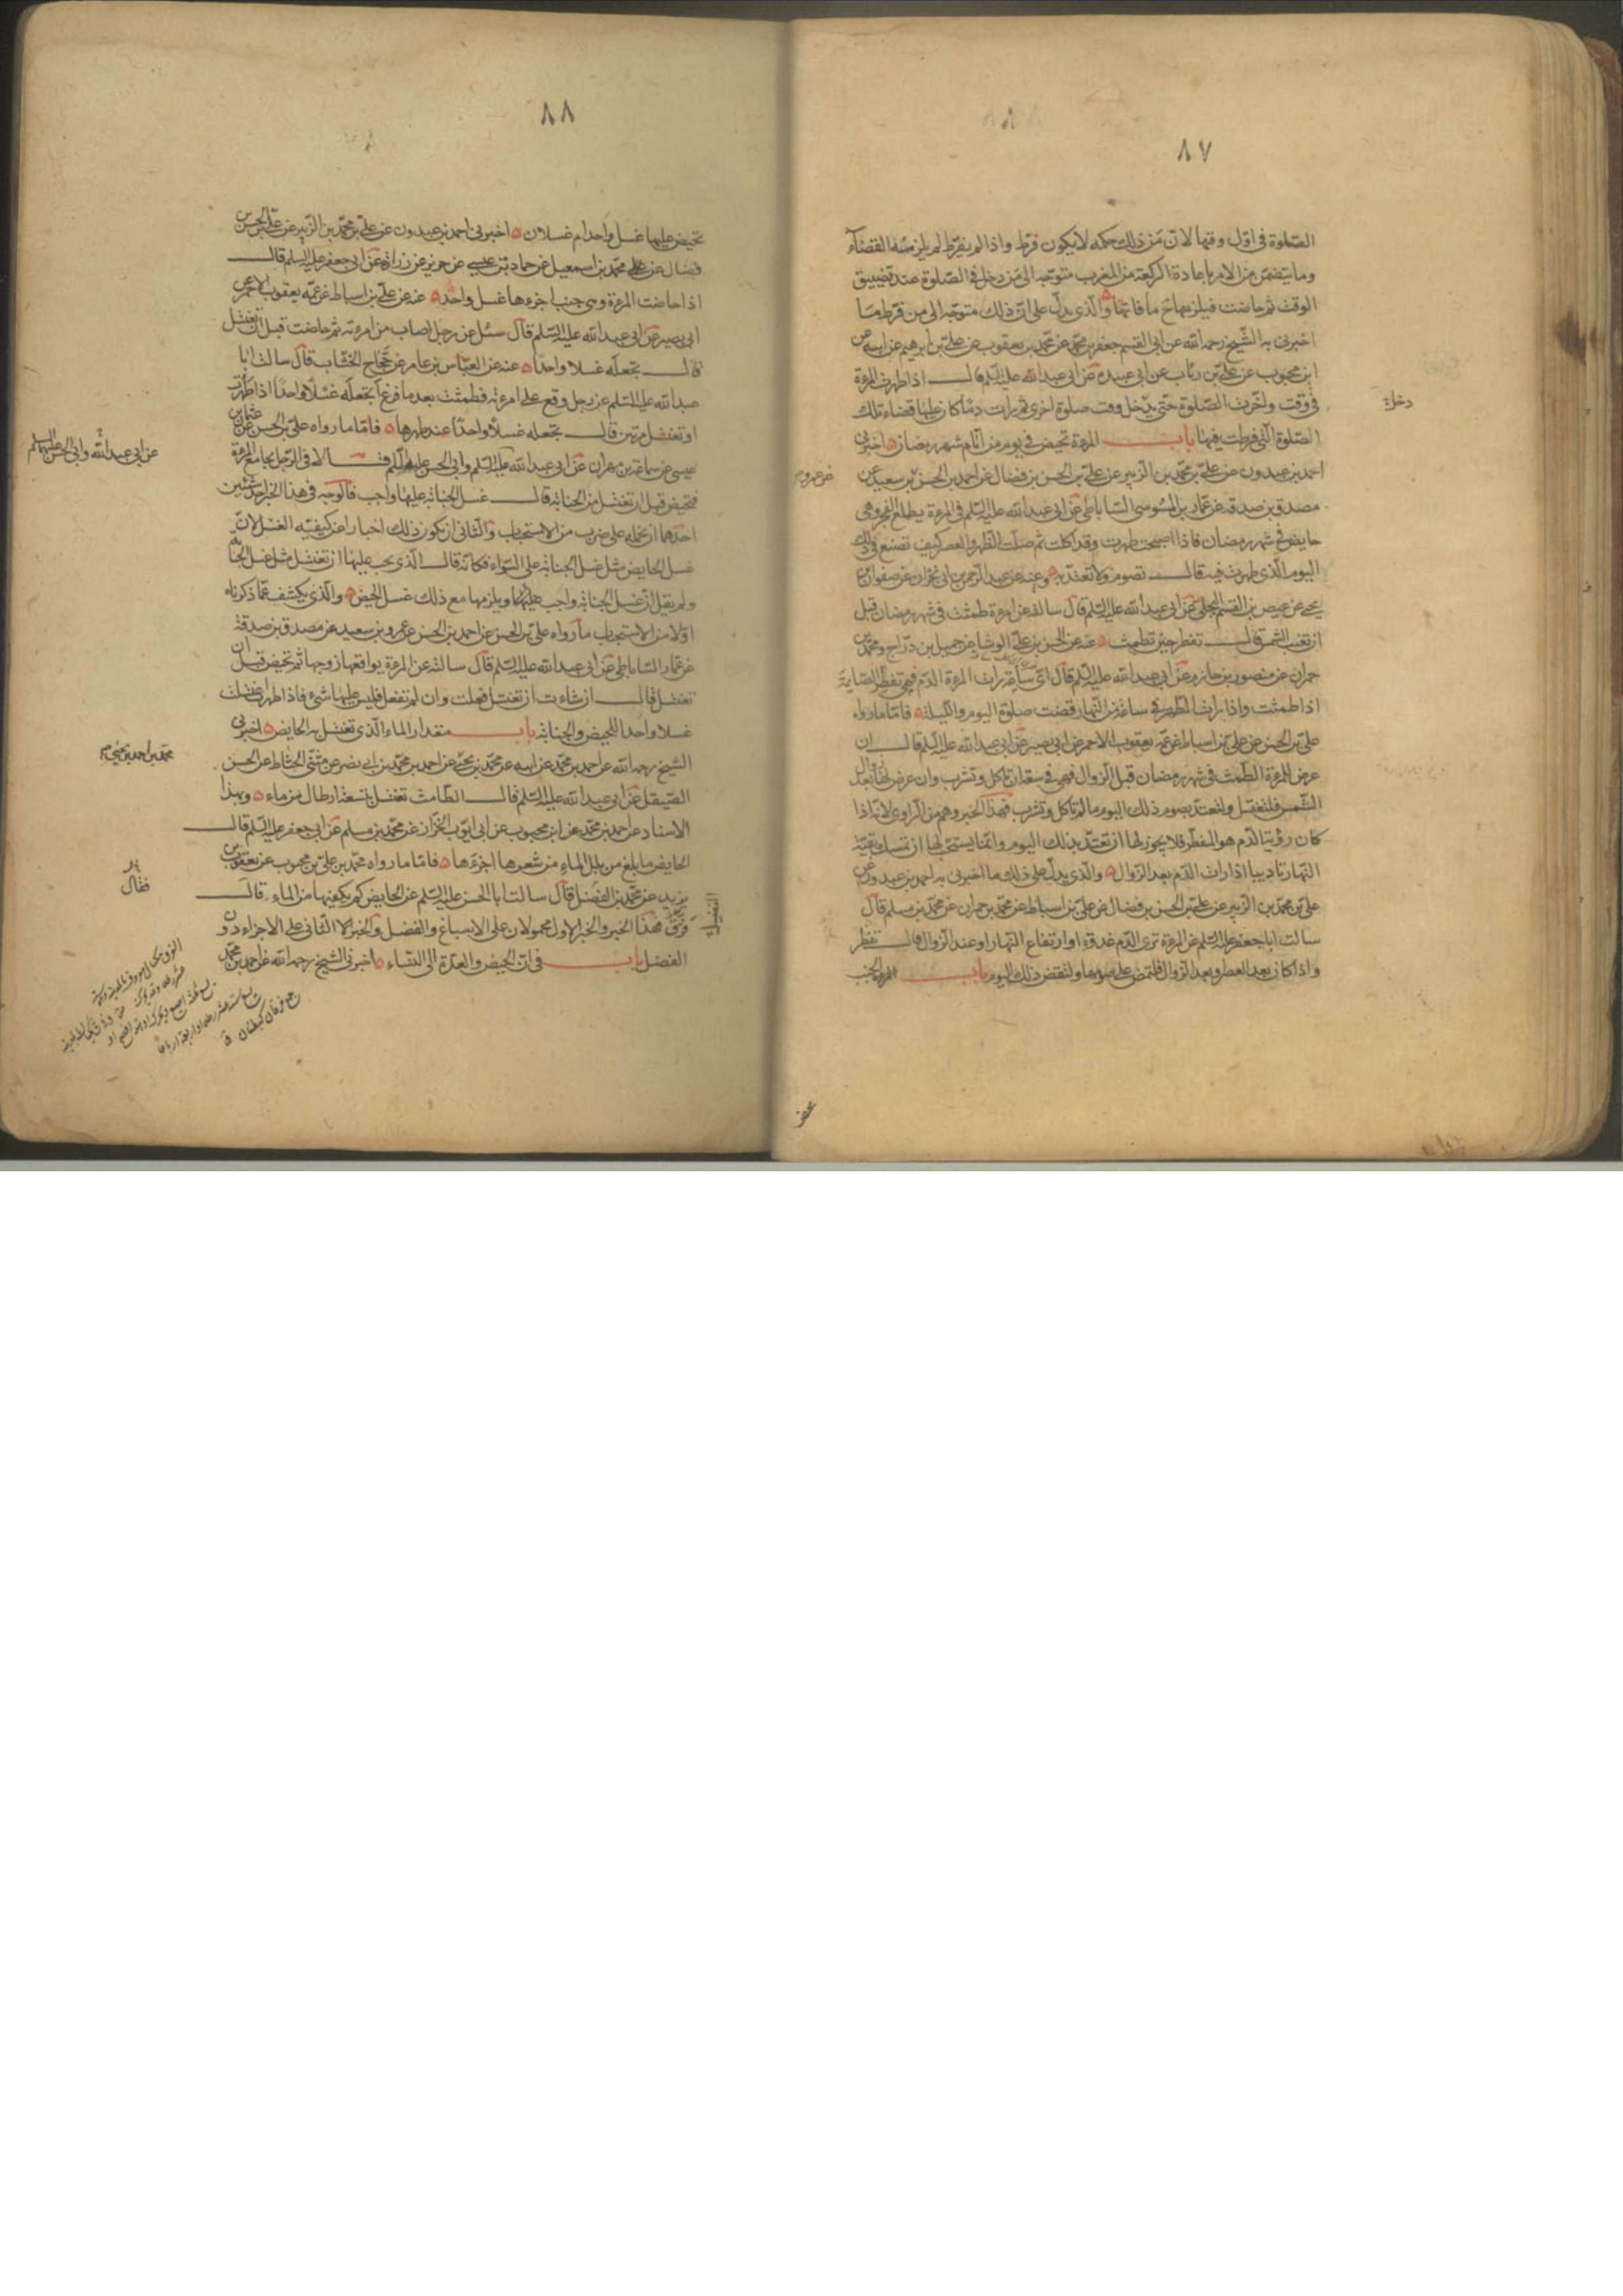 ٨٧
الصّلوة فى اوّل وقتها لانّ مَن ذلك حكمه لايكون فرّط واذا لم يفرّط لم يلزمه القضآء
وما يتضمّن من الامر باعادة الركعة من المغرب متوجّه الى مَن دخل فى الصّلوة عند تضييق
الوقت ثم حاضت فيلزمها ح ما فاتها والّذى يدلّ على انّ ذلك متوجّه الى من فرّط مَا
اخبرنى به الشّيخ رحمه الله عن ابى القسم جعفر بن محمّد عن محمّد بن يعقوب عن علىّ بن ابرهيم عن ابيه عن
ابن محبوب عن علىّ بن رئاب عن ابى عبيدة عن ابى عبدالله عليه السّلم قال اذا طهرت المرءة
فى وقت واخّرت الصّلوة حتّى يدخل وقت صلوة اخرى ثم رات دمًا كان عليها قضاء تلك
الصّلوة الّتى فرطت فيها باب المرءة تحيض فى يوم من ايّام شهر رمضان اخبرنى
احمد بن عبدون عن علىّ بن محمّد بن الزّبير عن علىّ بن الحسن بن فضال عن احمد بن الحسن بن سعيد عن
مصدق بن صدقة عن عمّار بن موسى السّاباطى عن ابى عبدالله عليه السّلم فى المرءة يطلع الفجر وهى
حايض فى شهر رمضان فاذا اصبحت طهرت وقد اكلت ثم صلّت الظّهر والعصر كيف تصنع فى ذلك
اليوم الّذى طهرت فيه قال تصوم ولا تعتدّ به وعنه عن عبد الرّحمن بن ابى نجران عن صفوان بن
يحيى عن عيص بن القسم البجلى عن ابى عبدالله عليه السّلم قال سالته عن امرءة طمثت فى شهر رمضان قبل
ان تغيب الشّمس قال تفطر حين تطمث عنه عن الحسن بن علىّ الوشا عن جميل بن درّاج ومحمّد بن
حمران عن منصور بن حازم عن ابى عبدالله عليه السّلم قال اىّ ساعة رات المرءة الدّم فهى تفطر الصّايمة
اذا طمثت واذا رات الطّهر فى ساعة من النّهار قضت صلوة اليوم واللّيلة فامّا ما رواه
علىّ بن الحسن عن علىّ بن اسباط عن عمّه يعقوب الاحمر عن ابى بصير عن ابى عبدالله عليه السّلم قال ان
عرض للمرءة الطّمث فى شهر رمضان قبل الزّوال فهى فى سعة ان تاكل وتشرب وان عرض لها بعد زوال
الشّمس فلتغتسل ولتعتدّ بصوم ذلك اليوم ما لم تاكل وتشرب فهذا الخبر وهم من الرّاوى لانّه اذا
كان رؤية الدّم هو المفطر فلا يجوز لها ان تعتدّ بذلك اليوم وانّما يستحبّ لها ان تمسك بقيّة
النّهار تاديبا اذا رات الدّم بعد الزّوال والّذى يدلّ على ذلك ما اخبرنى به احمد بن عبدون عن
علىّ بن محمّد بن الزّبير عن علىّ بن الحسن بن فضال عن علىّ بن اسباط عن محمّد بن حمران عن محمّد بن مسلم قال
سالت اباجعفر عليه السّلم عن المرءة ترى الدّم غدوة او ارتفاع النّهار او عند الزّوال قال تفطر
واذا كان بعد العصر وبعد الزّوال فلتمض على صومها ولتقض ذلك اليوم باب المرءة الجنب
دخل
٨٨
تحيض عليها غسل واحد ام غسلان اخبرنى احمد بن عبدون عن علىّ بن محمّد بن الزّبير عن علىّ بن الحسن بن
فضال عن علىّ محمّد بن اسمعيل عن حماد بن عيسى عن حريز عن زرارة عن ابى جعفر عليه السلم قال
اذا حاضت المرءة وهى جنب اجزءها غسل واحد عنه عن علىّ بن اسباط عن عمّه يعقوب الاحمر عن
ابى بصير عن ابى عبدالله عليه السّلم قال سئل عن رجل اصاب من امرءته ثم حاضت قبل ان تغتسل
قال تجعله غسلا واحدًا عنه عن العبّاس بن عامر عن حجّاج الخشّاب قال سالت ابا
عبدالله عليه السّلم عن رجل وقع على امرءته فطمثت بعد ما فرغ اتجعله غسلًا واحدًا اذا طهرت
او تغتسل مرتين قال تجعله غسلًا واحدًا عند طهرها فامّا ما رواه علىّ بن الحسن عن عثمان بن
عيسى عن سماعة بن مهران عن ابى عبدالله عليه السّلم وابى الحسن عليهما السّلم قالا فى الرّجل يجامع المرءة
فتحيض قبل ان تغتسل من الجنابة قال غسل الجنابة عليها واجب فالوجه فى هذا الخبر احد شيئين
احدهما ان نحمله على ضرب من الاستحباب والثّانى ان يكون ذلك اخبارا عن كيفيّه الغسل لانّ
غسل الحايض مثل غسل الجنابة على السّواء فكانّه قال الّذى يجب عليها ان تغتسل مثل غسل الجنابة
ولم يقل انّ غسل الجنابة واجب عليها ويلزمها مع ذلك غسل الحيض والّذى يكشف عمّا ذكرناه
اوّلا من الاستحباب ما رواه علىّ بن الحسن عن احمد بن الحسن عن عمرو بن سعيد عن مصدق بن صدقة
عن عمّار السّاباطى عن ابى عبدالله عليه السّلم قال سالته عن المرءة يواقعها زوجها ثم تحيض قبل ان
تغتسل قال ان شاءت ان تغتسل فعلت وان لم تفعل فليس عليها شىء فاذا طهرت اغتسلت
غسلا واحدا للحيض والجنابة باب مقدار الماء الّذى تغتسل به الحايض اخبرنى
الشّيخ رحمه الله عن احمد بن محمّد عن ابيه عن محمّد بن يحيى عن احمد بن محمّد بن ابى نصر عن مثنّى الحنّاط عن الحسن
الصّيقل عن ابى عبدالله عليه السّلم قال الطّامث تغتسل بتسعة ارطال من ماء وبهذا
الاسناد عن احمد بن محمّد عن ابن محبوب عن ابى ايّوب الخزّاز عن محمّد بن مسلم عن ابى جعفر عليه السّلم قال
الحايض ما بلغ من بلل الماء من شعرها اجزءها فامّا ما رواه محمّد بن علىّ بن محبوب عن يعقوب بن
يزيد عن محمّد بن الفضيل قال سالت ابا الحسن عليه السّلم عن الحايض كم يكفيها من الماء قال
فرق فهذا الخبر والخبر الاوّل محمولان على الاسباغ والفضل والخبر الثّانى على الاجزاء دون
الفضل باب فى انّ الحيض والعدّة الى النّساء اخبرنى الشّيخ رحمه الله عن احمد بن محمّد
عن ابى عبدالله وابى الحسن عليهما السلم
محمّد بن احمد بن يحيى
فقال